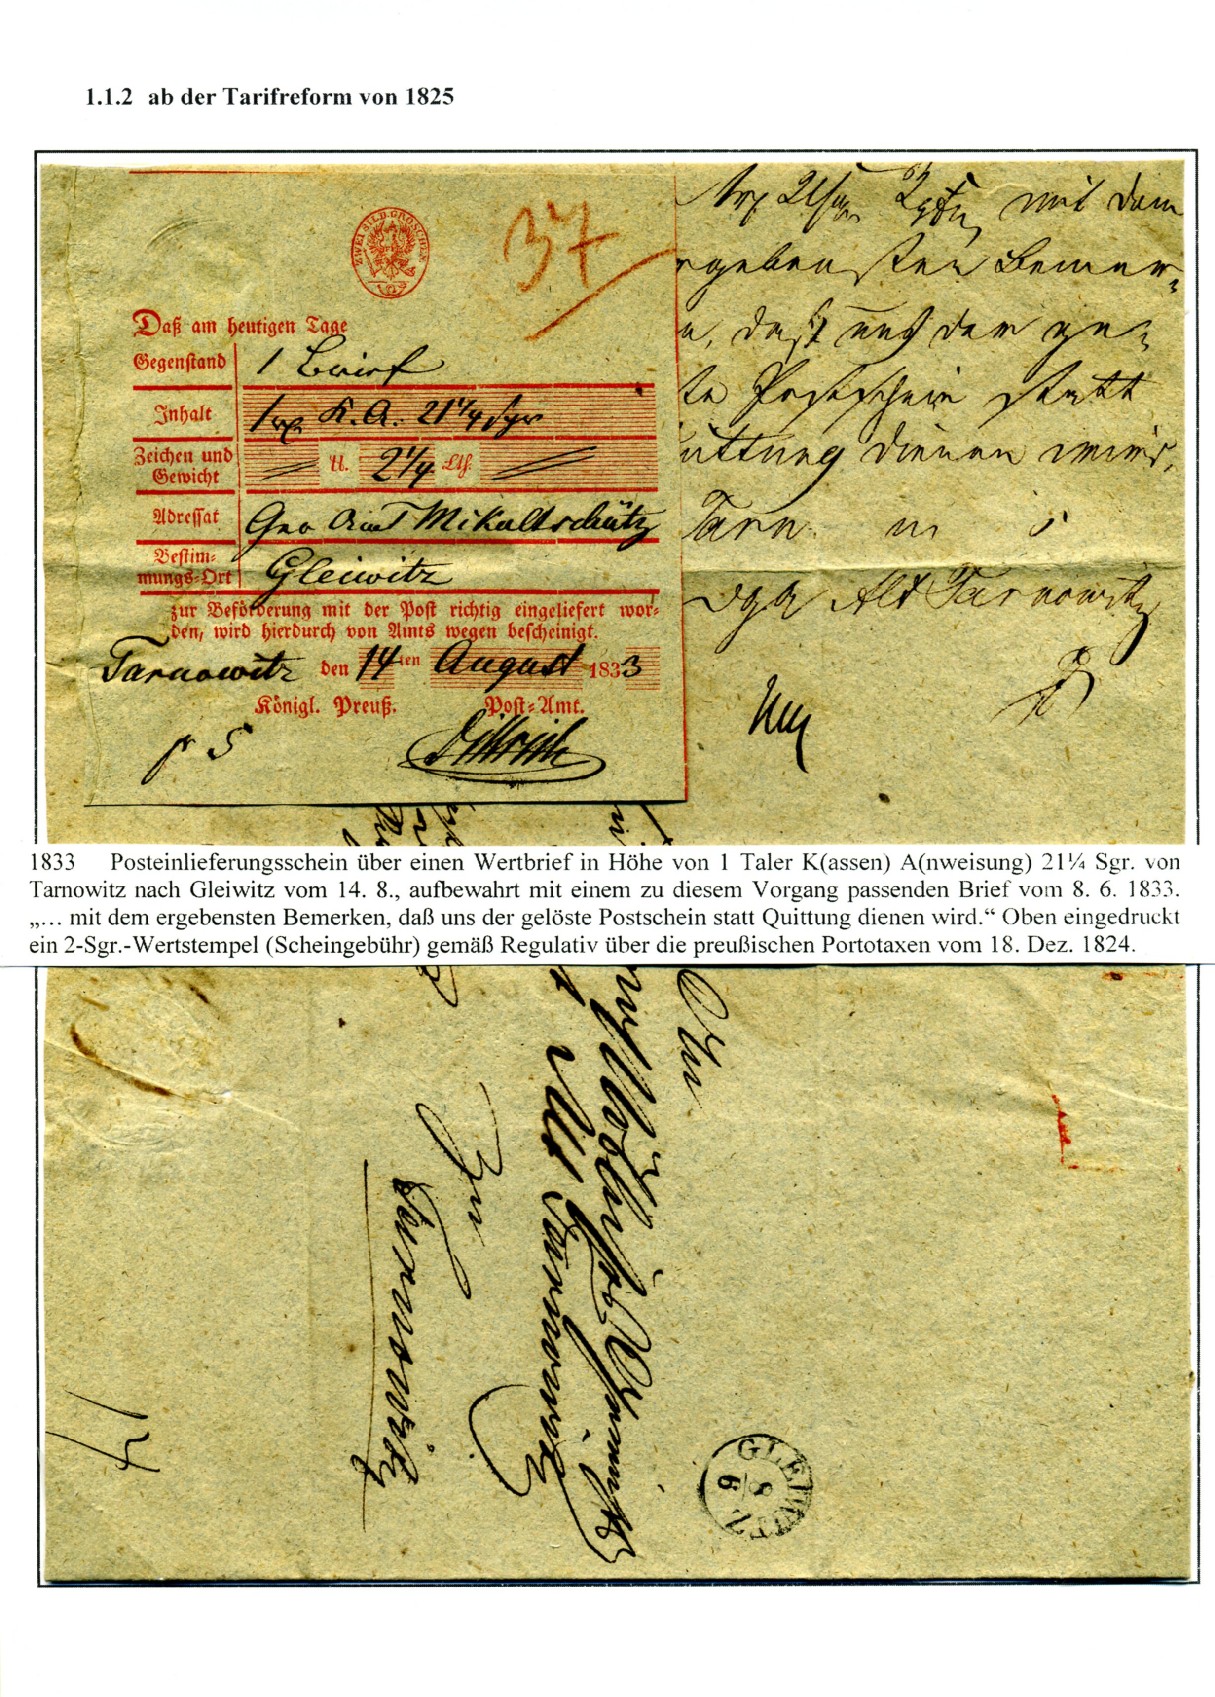 1.1.2 ab der Tarifreform von 1825
ZWEI SILB. GROSCHEN
37
Daß am heutigen Tage
Gegenstand 1 Brief
Inhalt 1 rℓ K. A. 21 1/4 sgr
Zeichen und Gewicht ℔. 2 1/4 Lth.
Adressat Amt Mikultschütz
Bestim-
mungs-Ort Gleiwitz
zur Beförderung mit der Post richtig eingeliefert wor-
den, wird hierdurch von Amts wegen bescheinigt.
Tarnowitz den 14ten August 1833
Königl. Preuß. Post-Amt.
Dittrich
mit dem
rgebensten Bemer-
n, daß uns der ge-
te Postschein statt
uittung dienen wird.
Tarn
Alt Tarnowitz
1833 Posteinlieferungsschein über einen Wertbrief in Höhe von 1 Taler K(assen) A(nweisung) 21¼ Sgr. von
Tarnowitz nach Gleiwitz vom 14. 8., aufbewahrt mit einem zu diesem Vorgang passenden Brief vom 8. 6. 1833.
„... mit dem ergebensten Bemerken, daß uns der gelöste Postschein statt Quittung dienen wird.“ Oben eingedruckt
ein 2-Sgr.-Wertstempel (Scheingebühr) gemäß Regulativ über die preußischen Portotaxen vom 18. Dez. 1824.
Alt Tarnowitz
Zu
Tarnowitz
GLEIWITZ
8
9